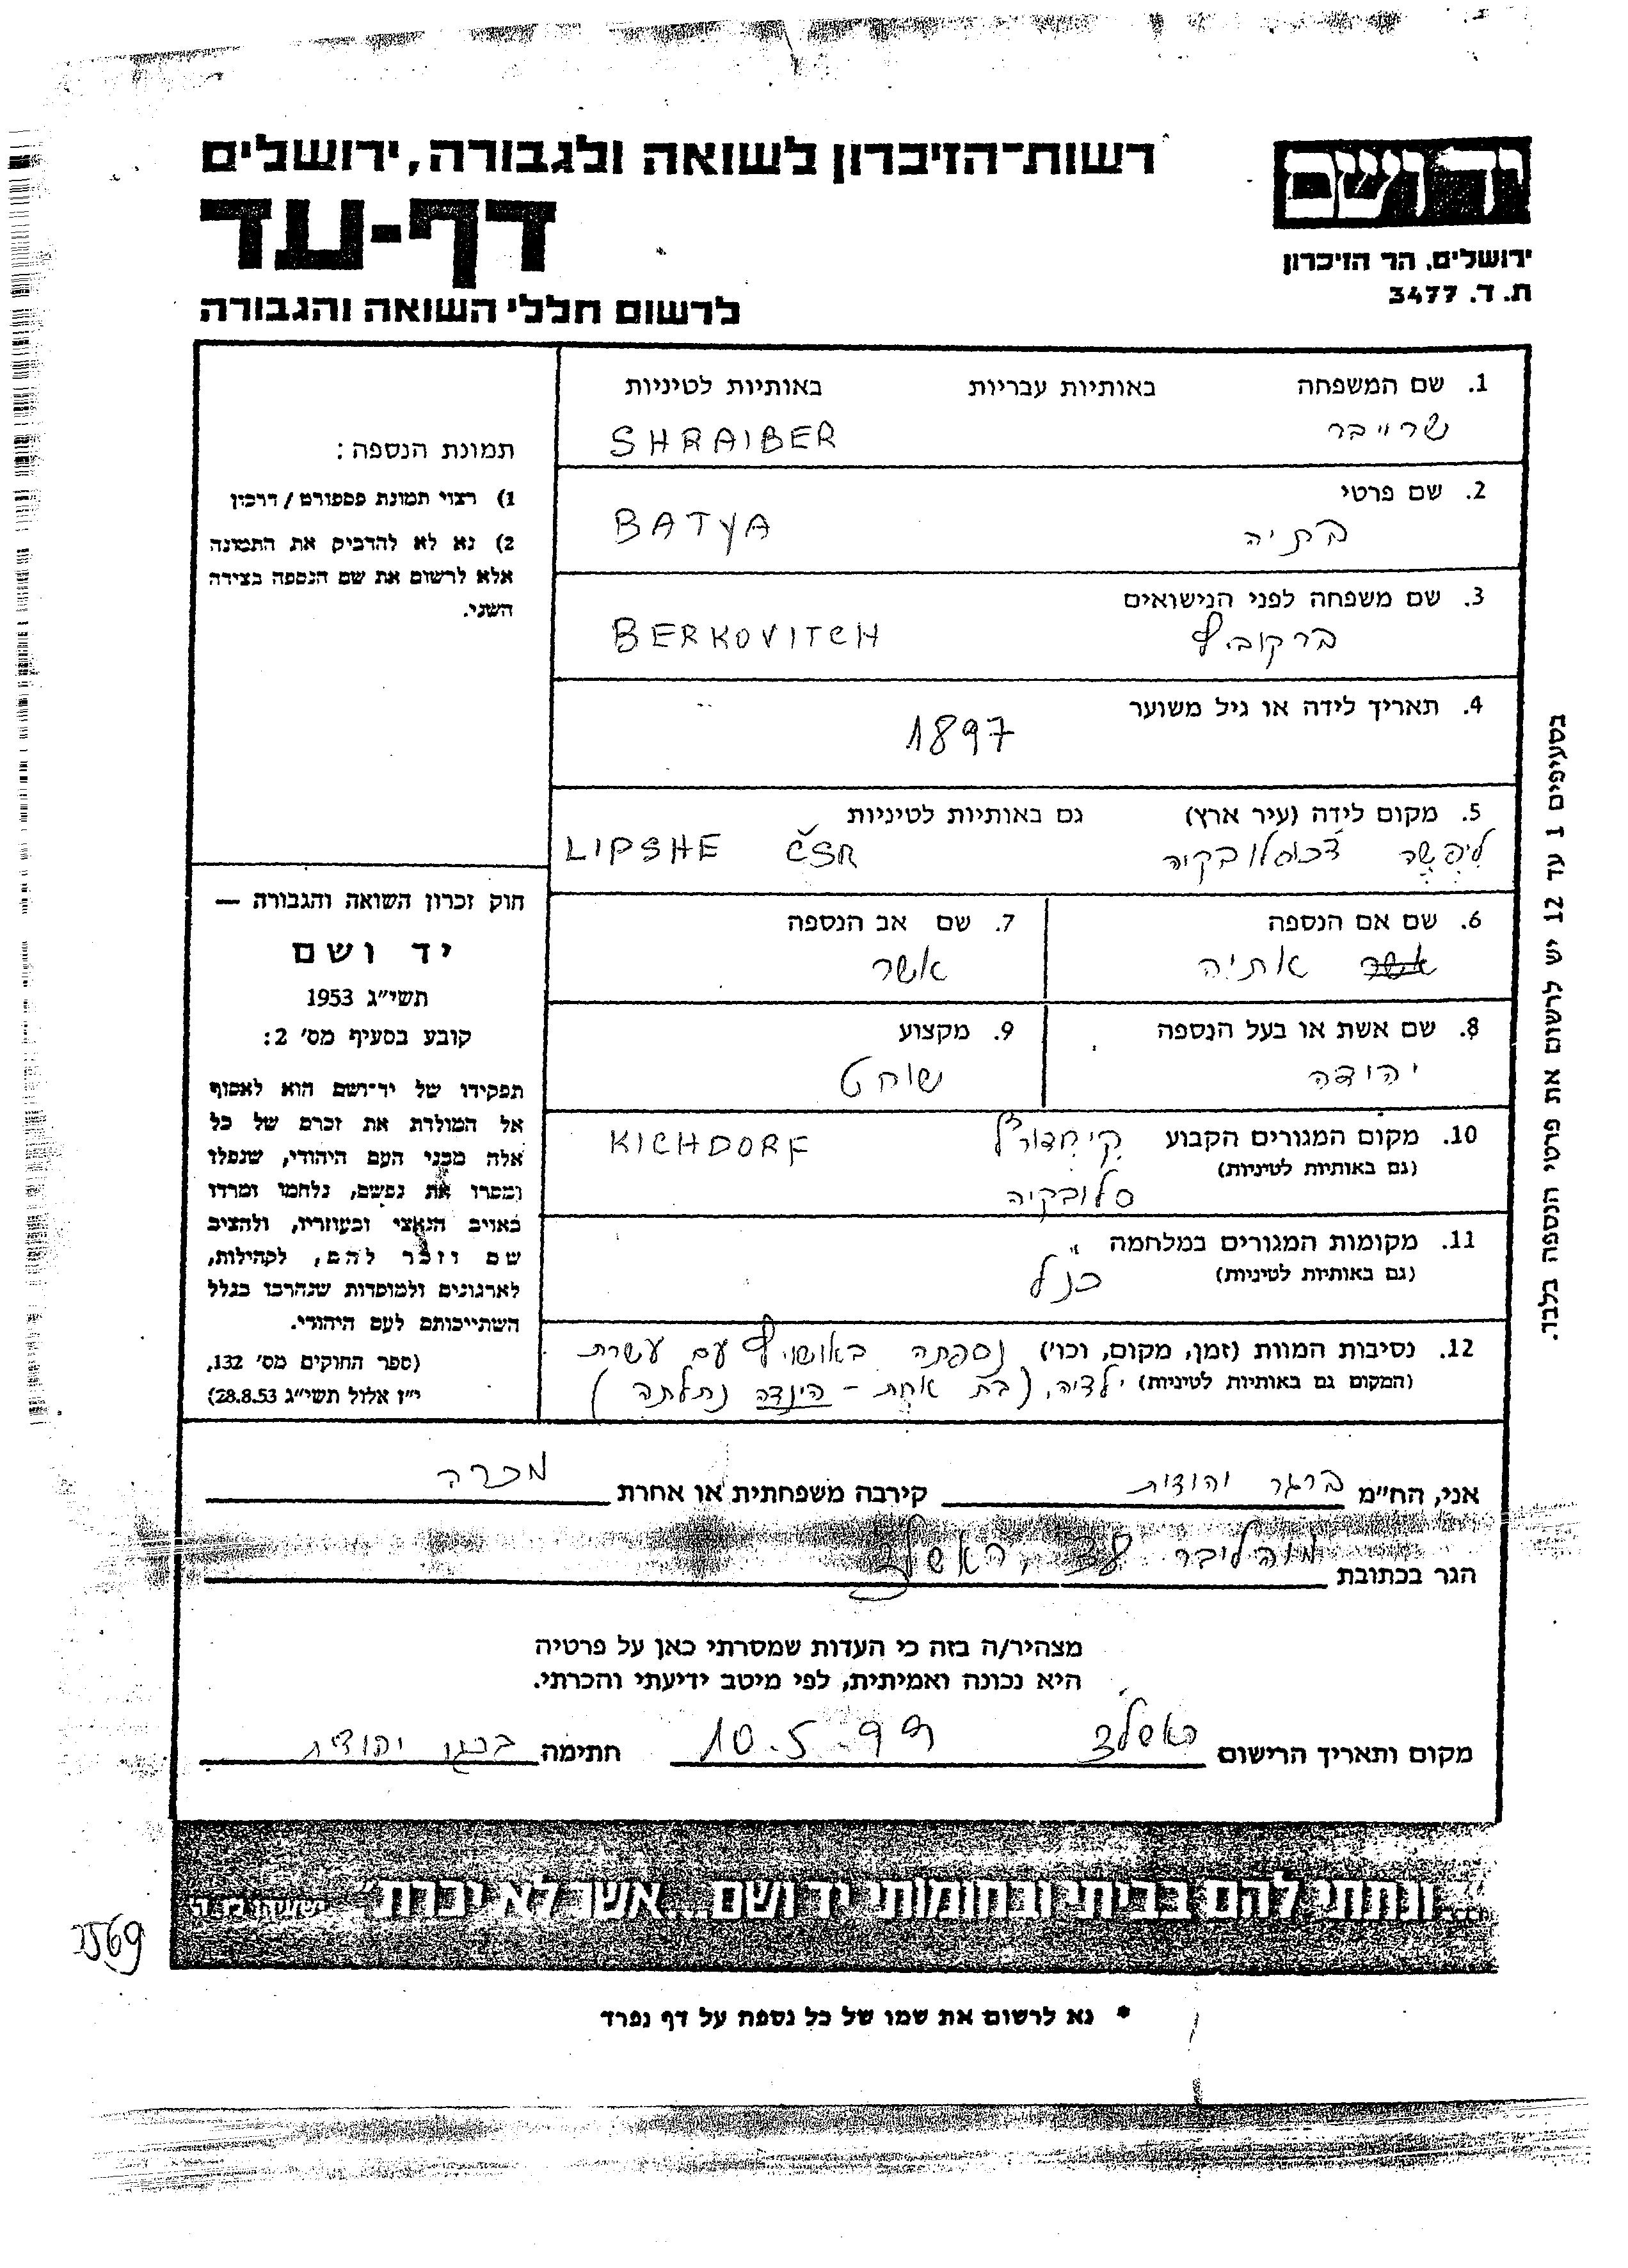 יד ושם
רשות־הזיכרון לשואה ולגבורה, ירושלים
דף-עד
ירושלים, הר הזיכרון
ת. ד. 3477
לרשום חללי השואה והגבורה
1. שם המשפחה באותיות עבריות באותיות לטיניות
שרייבר SHRAIBER
2. שם פרטי
בתיה BATYA
3. שם משפחה לפני הנישואים
ברקוביץ BERKOVITCH
4. תאריך לידה או גיל משוער
1897
5. מקום לידה (עיר ארץ) גם באותיות לטיניות
ליפשה צ'כוסלובקיה LIPSHE ČSR
6. שם אם הנספה 7. שם אב הנספה
אתיה אשר
8. שם אשת או בעל הנספה 9. מקצוע
יהודה שוחט
10. מקום המגורים הקבוע קיחדורף KICHDORF
(גם באותיות לטיניות)
סלובקיה
11. מקומות המגורים במלחמה
(גם באותיות לטיניות) כנ"ל
12. נסיבות המוות (זמן, מקום, וכו') נספתה באושויץ עם עשרת
(המקום גם באותיות לטיניות) ילדיה, (בת אחת - הינדה נתלתה)
תמונת הנספה:
1) רצוי תמונת פספורט / דרכון
2) נא לא להדביק את התמונה
אלא לרשום את שם הנספה בצידה
השני.
חוק זכרון השואה והגבורה —
יד ושם
תשי״ג 1953
קובע בסעיף מס׳ 2:
תפקידו של יד־ושם הוא לאסוף
אל המולדת את זכרם של כל
אלה מבני העם היהודי, שנפלו
ומסרו את נפשם, נלחמו ומרדו
באויב הנאצי ובעוזריו, ולהציב
שם וזכר להם, לקהילות,
לארגונים ולמוסדות שנהרבו בגלל
השתייכותם לעם היהודי.
(ספר החוקים מס׳ 132,
י״ז אלול תשי״ג 28.8.53)
בסעיפים 1 עד 12 יש לרשום את פרטי הנספה בלבד.
אני, הח״מ ברגר יהודית קירבה משפחתית או אחרת מכרה
הגר בכתובת מוהליבר ראשל"צ
מצהיר/ה בזה כי העדות שמסרתי כאן על פרטיה
היא נכונה ואמיתית, לפי מיטב ידיעתי והכרתי.
מקום ותאריך הרישום ראשל"צ 10.5.99 חתימה ברגר יהודית
״...ונתתי להם בביתי ובחומותי יד ושם...אשר לא יכרת״ ישעיהו נו ה׳
* נא לרשום את שמו של כל נספה על דף נפרד